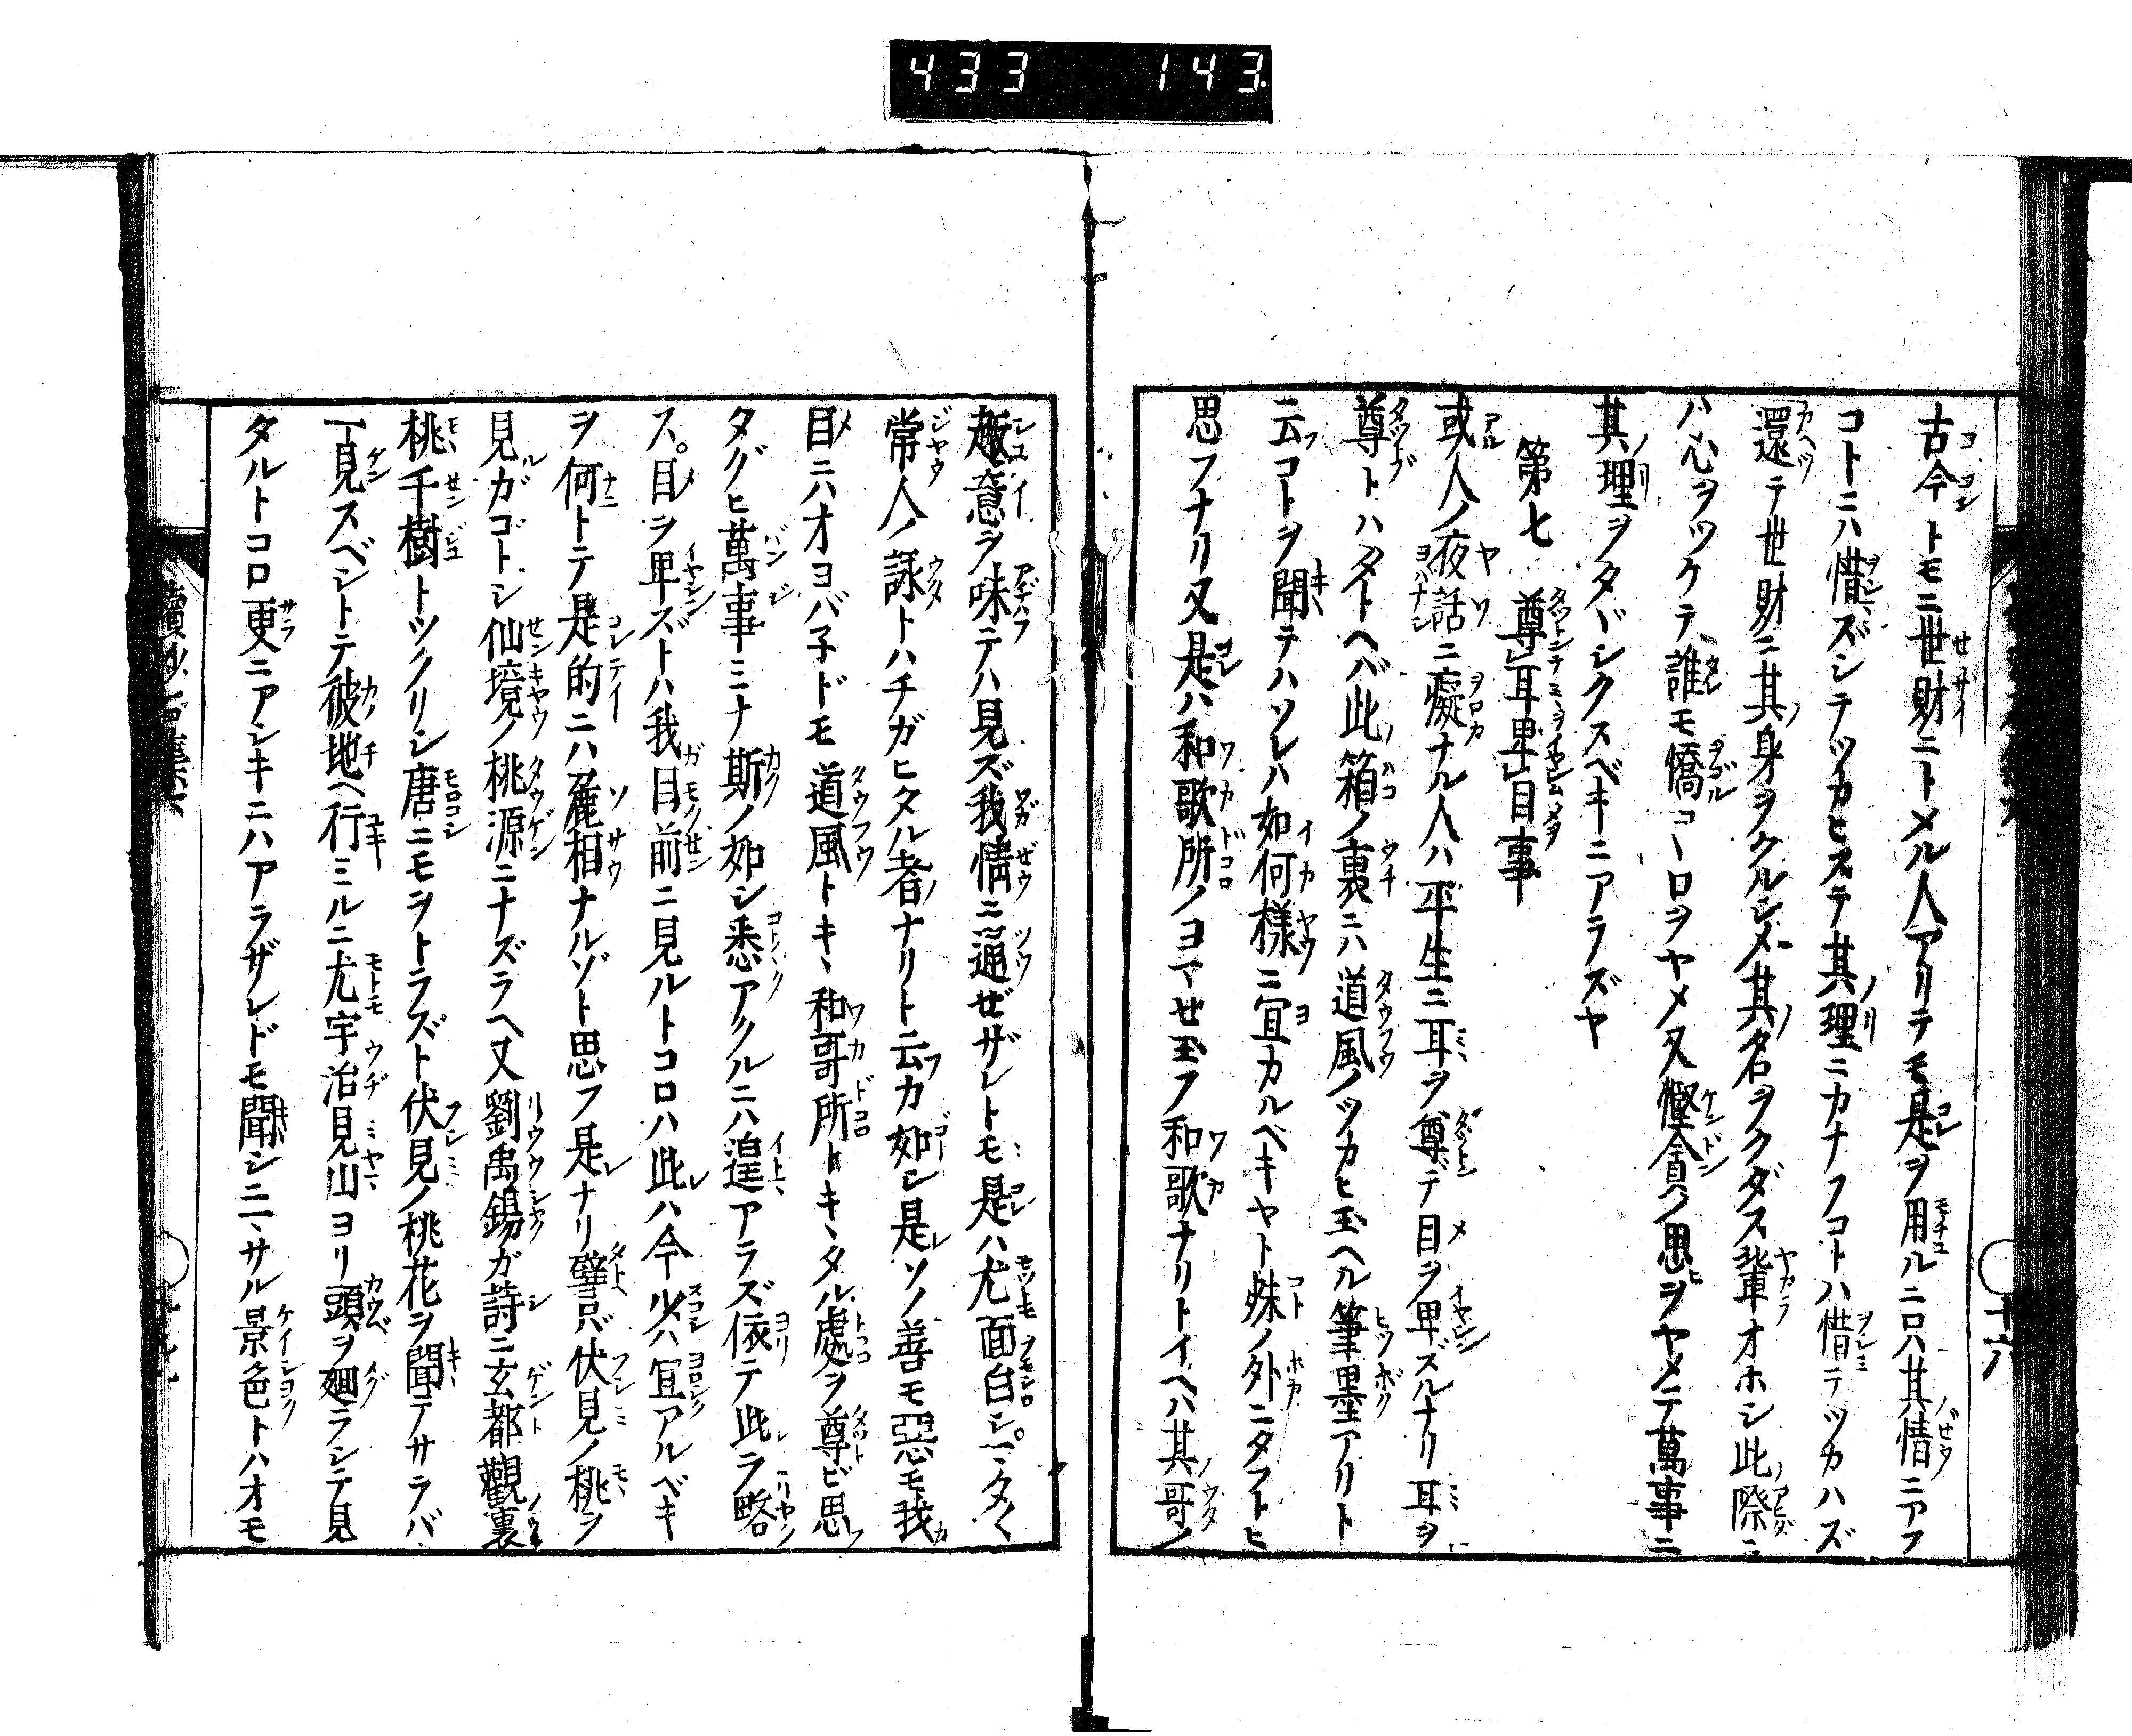 433 143.
古今トモニ世財ニトメル人アリテモ是ヲ用ルニロハ其情ニアフ
コトニハ惜ズシテツカヒステ其理ニカナフコトハ惜テツカハズ
還テ世財ニ其身ヲクルシメ其名ヲクダス輩オホシ此際ニ
ハ心ヲツケテ誰モ憍コヽロヲヤメ又慳貪ノ思ヲヤメテ萬事ニ
其理ヲタヾシクスベキニアラズヤ
第七 尊耳卑目事
或人ノ夜話ニ癡ナル人ハ平生ニ耳ヲ尊デ目ヲ卑ズルナリ耳ヲ
尊トハタトヘバ此箱ノ裏ニハ道風ノツカヒ玉ヘル筆墨アリト
云コトヲ聞テハソレハ如何樣ニ宜カルベキヤト殊ノ外ニタフトヒ
思フナリ又是ハ和歌所ノヨマセ玉フ和歌ナリトイヘハ其哥ノ
趣意ヲ味テハ見ズ我情ニ通ゼザレトモ是ハ尤面白シ。
常人ノ詠トハチガヒタル者ナリト云カ如シ是ソノ善モ惡モ我
目ニハオヨバ子ドモ道風トキヽ和哥所トキヽタル處ヲ尊ビ思
タグヒ萬事ミナ斯ノ如シ悉アクルニハ遑アラズ依テ此ヲ略
ス。目ヲ卑ズトハ我目前ニ見ルトコロハ此ハ今少ハ宜アルベキ
ヲ何トテ是的ニハ麤相ナルゾト思フ是ナリ譬ハ伏見ノ桃ヲ
見ガゴトシ仙境ノ桃源ニナズラヘ又劉禹錫ガ詩ニ玄都觀裏
桃千樹トツクリシ唐ニモヲトラズト伏見ノ桃花ヲ聞テサラバ
一見スベシトテ彼地ヘ行ミルニ尤宇治見山ヨリ頭ヲ廻ラシテ見
タルトコロ更ニアシキニハアラザレドモ聞シニヽサル景色トハオモ